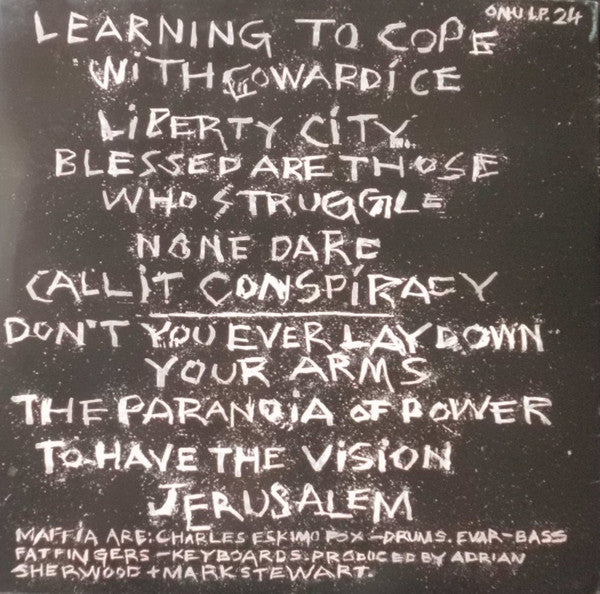 ONU LP. 24
LEARNING TO COPE
WITH COWARDICE
LIBERTY CITY.
BLESSED ARE THOSE
WHO STRUGGLE
NONE DARE
CALL IT CONSPIRACY
DON'T YOU EVER LAY DOWN
YOUR ARMS
THE PARANOIA OF POWER
TO HAVE THE VISION
JERUSALEM
MAFFIA ARE: CHARLES ESKIMO FOX - DRUMS. EVAR - BASS
FATFINGERS - KEYBOARDS. PRODUCED BY ADRIAN
SHERWOOD + MARK STEWART.